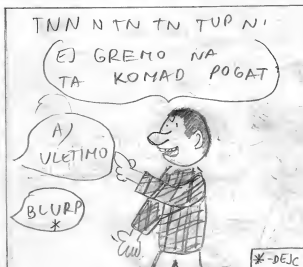 TNN N TN TN TUP N'
EJ GREMO NA
TA KOMAD POGAT
A'
ULETIMO
BLURP
*
*-DEJC